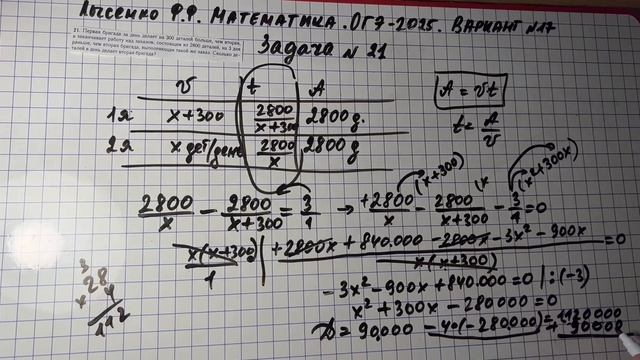 Лысенко Ф.Ф. МАТЕМАТИКА. ОГЭ-2025. ВАРИАНТ №17
Задача №21
21. Первая бригада за день делает на 300 деталей больше, чем вторая,
и заканчивает работу над заказом, состоящим из 2800 деталей, на 3 дня
раньше, чем вторая бригада, выполняющая такой же заказ. Сколько де-
талей в день делает вторая бригада?
v t A
1я x+300 2800/(x+300) 2800 д.
2я x дет/день 2800/x 2800 д
A = vt
t = A/v
2800/x − 2800/(x+300) = 3/1 → +2800/x (x+300) − 2800/(x+300) (x − 3/1 (x²+300x) = 0
x(x+300)/1 | +2800x + 840.000 − 2800x − 3x² − 900x / x(x+300) = 0
− 3x² − 900x + 840.000 = 0 | : (−3)
x² + 300x − 280000 = 0
D = 90.000 − 4·(−280.000) = 1120000
+ 90000
3
28
× 4
112